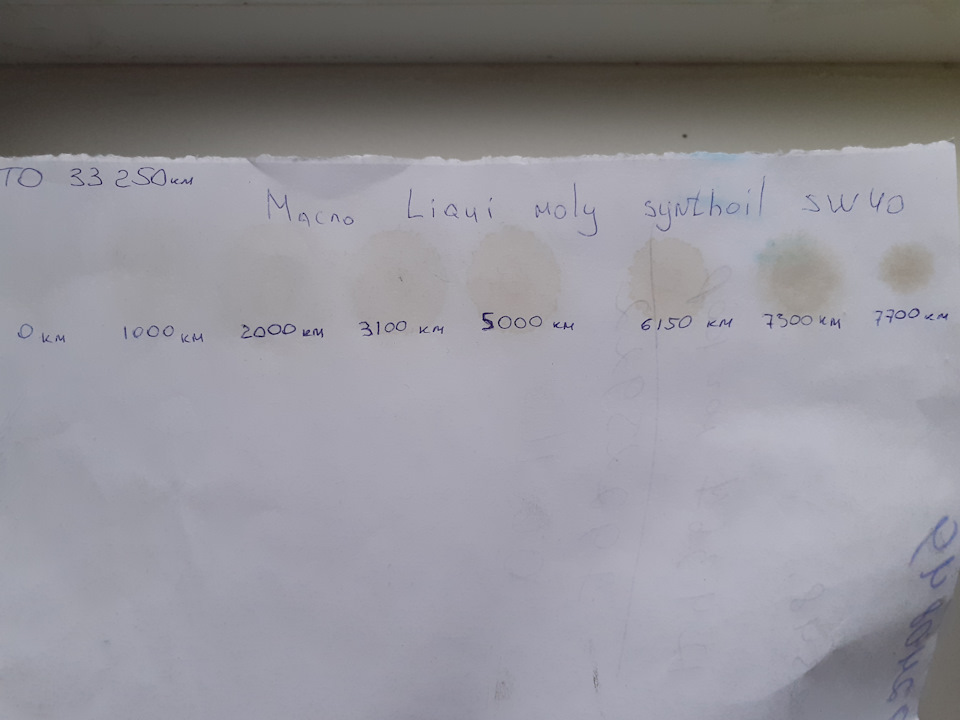 ТО 33 250км
Масло Liqui moly synthoil 5W40
0 км 1000 км 2000 км 3100 км 5000 км 6150 км 7300 км 7700 км